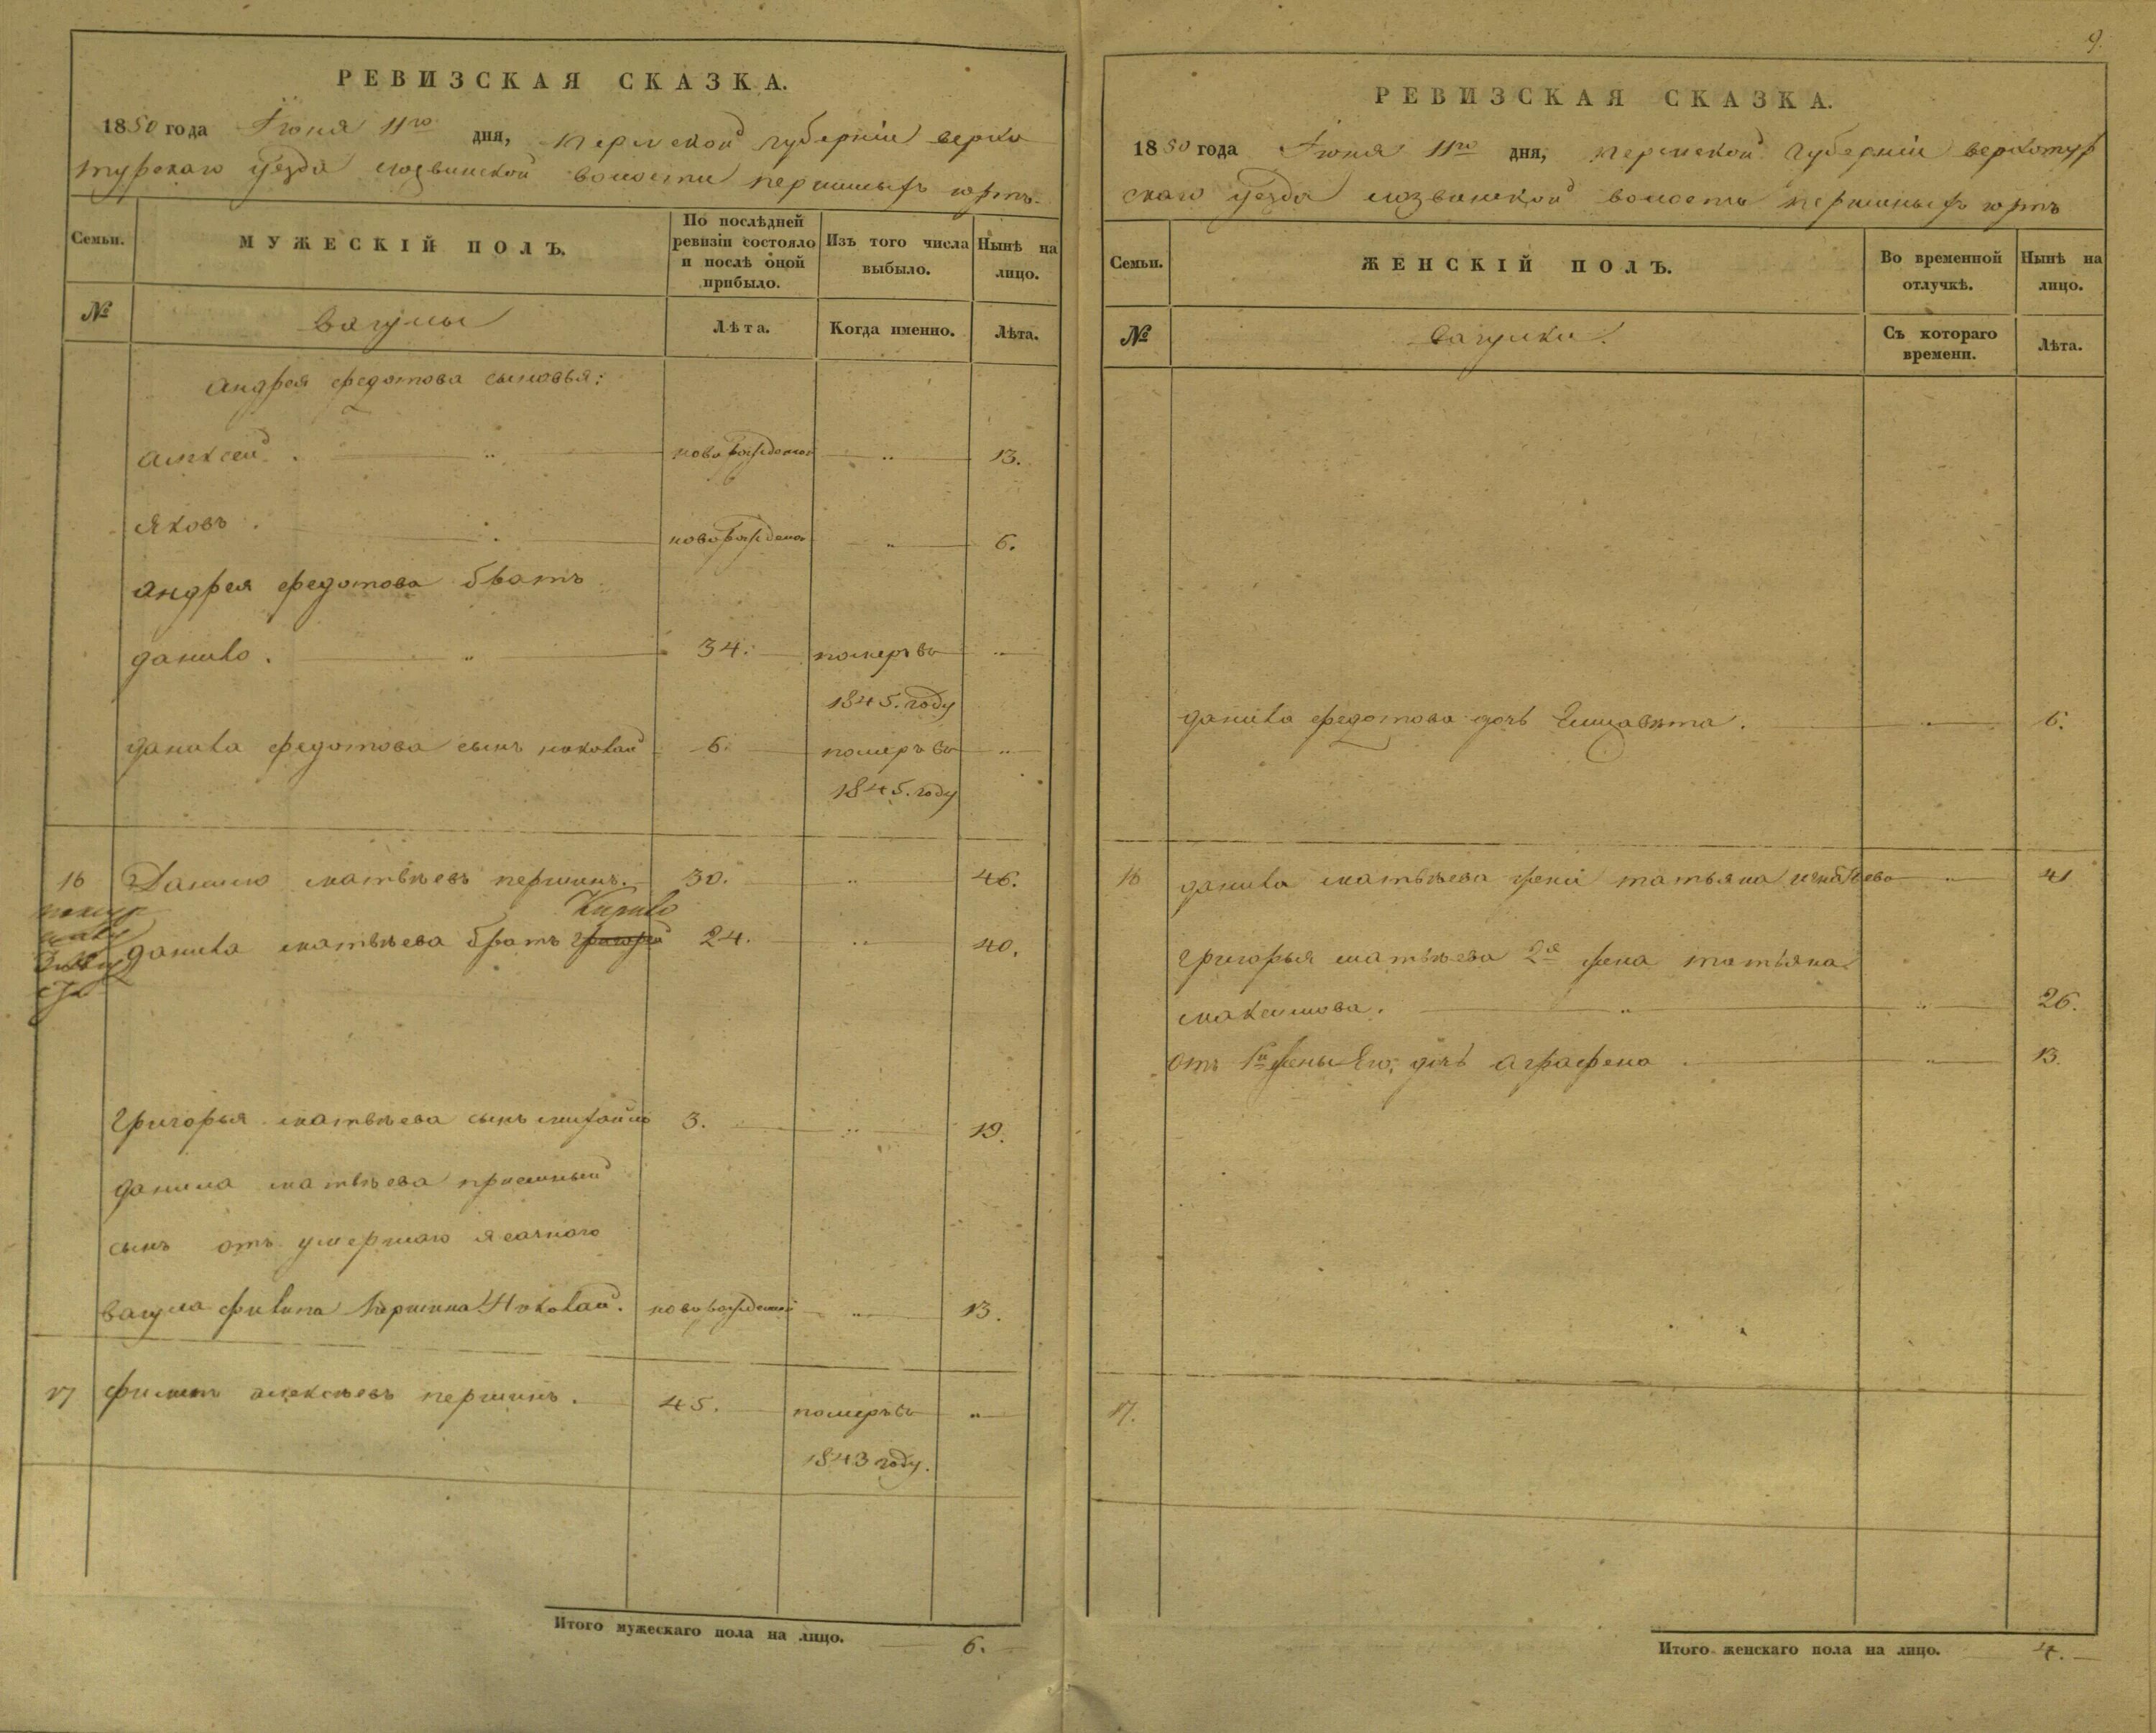 РЕВИЗСКАЯ СКАЗКА.
1850 года Іюня 11го дня, пермской губерніи верхо
турскаго уѣзда лозвинской волости першиныхъ юртъ.
Семьи.
МУЖЕСКІЙ ПОЛЪ.
По послѣдней ревизіи состояло и послѣ оной прибыло.
Изъ того числа выбыло.
Нынѣ на лицо.
№
вагулы
Лѣта.
Когда именно.
Лѣта.
Андрея федотова сыновья:
алексей . — „ — новорожденой — „ — 13.
Яковъ . — „ — новорожденой — „ — 6.
Андрея федотова братъ
данило . — „ — 34. — померъ въ — „ —
1845. году
данила федотова сынъ николай 6. — померъ въ — „ —
1845. году
16 Данило матвѣевъ першинъ. — 30. — „ — 46.
Кирило
данила матвѣева братъ григорей 24. — „ — 40.
григорья матвѣева сынъ михайло 3. — „ — 19.
данила матвѣева приемный
сынъ отъ умершаго ясачнаго
вагула филипа Першина Николай. новорожденой — „ — 13.
17 филипъ алексѣевъ першинъ. — 45. — померъ въ — „ —
1843 году.
Итого мужескаго пола на лицо. — 6. —
9.
РЕВИЗСКАЯ СКАЗКА.
1850 года Іюня 11го дня, пермской губерніи верхотур
скаго уѣзда лозвинской волости першиныхъ юртъ
Семьи.
ЖЕНСКІЙ ПОЛЪ.
Во временной отлучкѣ.
Нынѣ на лицо.
№
вагулки.
Съ котораго времени.
Лѣта.
данила федотова дочь Елисавѣта . — „ — 6.
16 данила матвѣева жена татьяна — „ — 41
григорья матвѣева 2я жена татьяна
максимова . — „ — „ — 26.
отъ 1й жены Его, дочь аграфена . — „ — 13.
17.
Итого женскаго пола на лицо. — 4. —